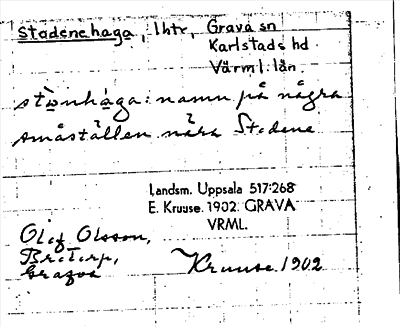 Stadenehaga, lhtr, Grava sn
Karlstads hd
Värml. län.
stὼnhaga: namn på några
småställen nära Stadene
Landsm. Uppsala 517:268
E. Kruuse. 1902. GRAVA
VRML.
Olof Olsson,
Grafva
Kruuse 1902